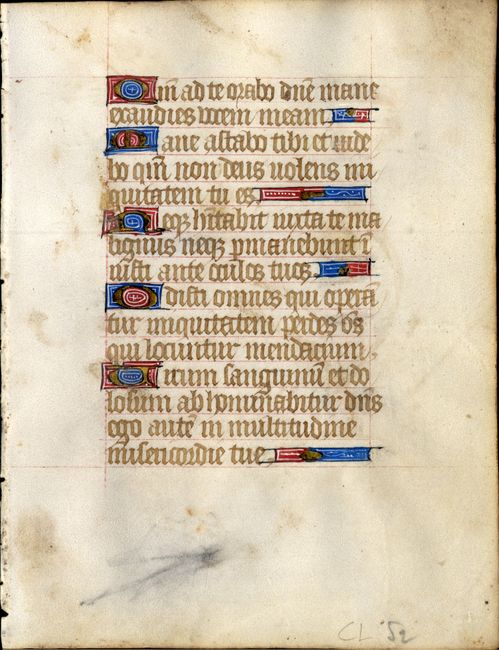 Qm̄ ad te orabo dn̄e mane
exaudies vocem meam
Mane astabo tibi et vide
bo qm̄ non deus volens ini
quitatem tu es
Neqꝫ hītabit iuxta te ma
lignus neqꝫ ꝑmanebunt ī
iusti ante oculos tuos
Odisti omnes qui operā
tur iniquitatem perdes os
qui locuntur mendacium
Virum sanguinū et do
losum abhominabitur dn̄s
ego autē in multitudine
misericordie tue
CL 52